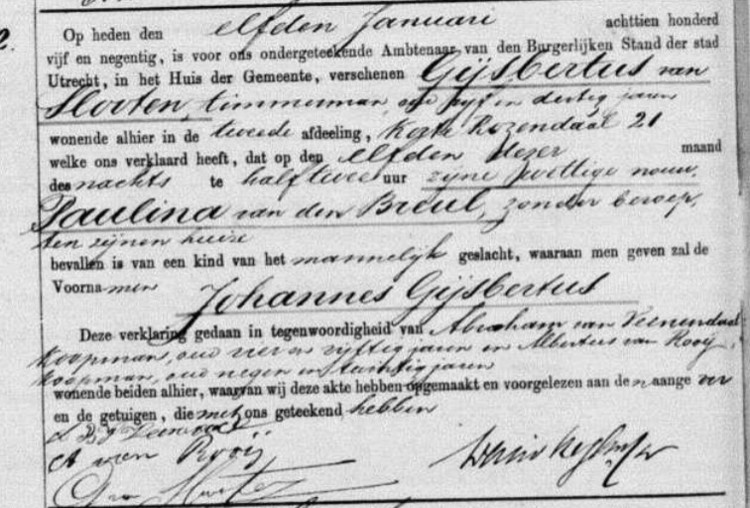 2.
Op heden den elfden Januari achttien honderd
vijf en negentig, is voor ons ondergeteekende Ambtenaar van den Burgerlijken Stand der stad
Utrecht, in het Huis der Gemeente, verschenen Gijsbertus van
Slooten, timmerman, oud vijf en dertig jaren
wonende alhier in de tweede afdeeling, Korte Rozendaal 21
welke ons verklaard heeft, dat op den elfden dezer maand
des nachts te half twee uur zijne wettige vrouw,
Paulina van den Breul, zonder beroep,
ten zijnen huize
bevallen is van een kind van het mannelijk geslacht, waaraan men geven zal de
Voornamen Johannes Gijsbertus
Deze verklaring gedaan in tegenwoordigheid van Abraham van Veenendaal
koopman, oud vier en vijftig jaren en Albertus van Rooij,
koopman, oud negen en tachtig jaren
wonende beiden alhier, waarvan wij deze akte hebben opgemaakt en voorgelezen aan den aangever
en de getuigen, die met ons geteekend hebben
A van Rooij